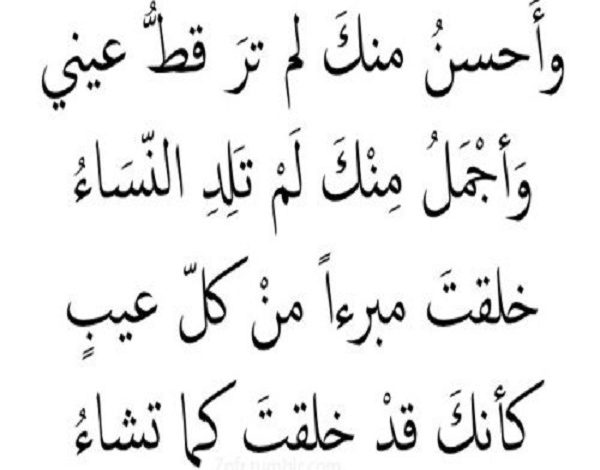 وأَحسنُ منكَ لم ترَ قطُّ عيني
وَأجْمَلُ مِنْكَ لَمْ تَلِدِ النّسَاءُ
خلقتَ مبرءاً منْ كلّ عيبٍ
كأنكَ قدْ خلقتَ كما تشاءُ